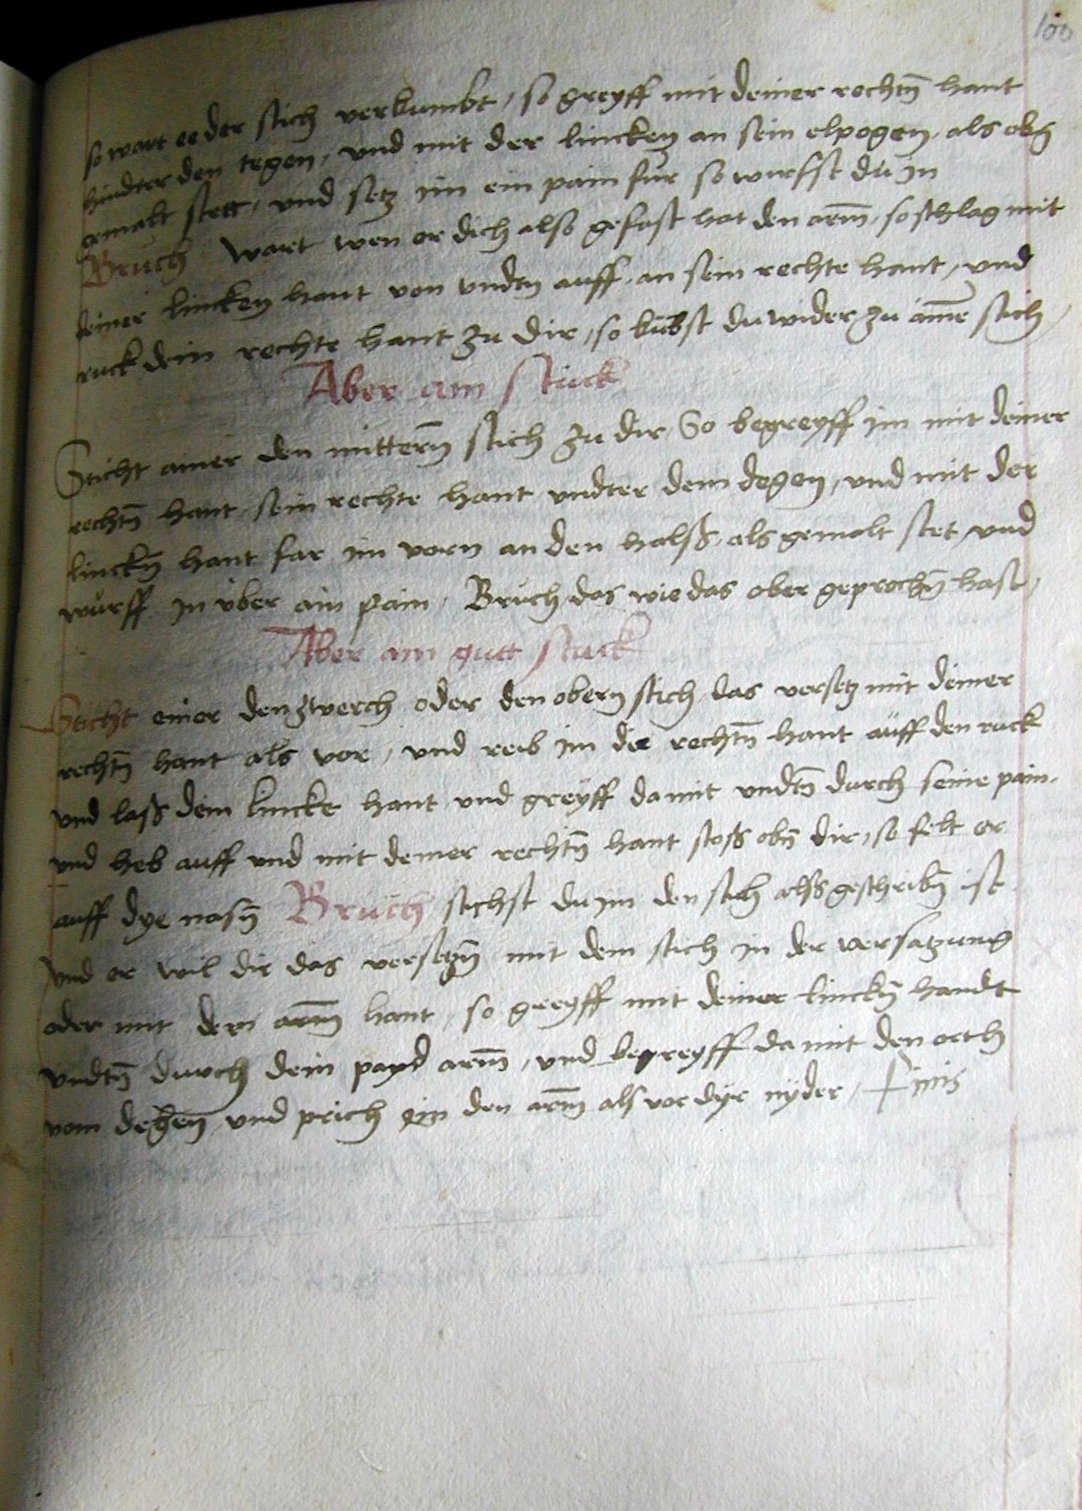 100
so wart ee der stich verkumbt / so greyff mit deiner rechtn̄ hant
hindter den tegen / vnd mit der lincken an sein elpogen / als obn̄
gemalt stett / vnd setz im ein pain für so würfst du in
Bruch Wart wen er dich also gefast hat den arm̄ / so schlag mit
deiner lincken hant von vndtn̄ auff / an sein rechte hant / vnd
ruck dein rechte hant zu dir / so kūbst du wider zu aīm stich /
Aber am stuck
Sticht ainer den mittern̄ stich zu dir / So begreyff im mit deiner
rechtn̄ hant sein rechte hant vndter dem degen / vnd mit der
linckn̄ hant far im vorn an den halß / als gemalt stet vnd
würff in vber ain pain / Bruch das wie das ober geprochn̄ hast /
Aber am gutt stuck
Sticht einer den zwerch oder den obern stich / das versetz mit deiner
rechtn̄ hant als vor / vnd reib im die rechtn̄ hant auff den ruck
vnd laß dein lincke hant vnd greyff da mit vndtn̄ durch seine pain /
vnd heb auff vnd mit deiner rechtn̄ hant stoß obn̄ dir / so felt er
auff dye nasn̄ Bruch stichst du im den stich alß geschribn̄ ist
vnd er wil dir das versetzn̄ mit dem stich in der versatzung
oder mit dem arm̄ hant / so greyff mit deiner linckn̄ handt
vndtn̄ durch dein payd arm̄ / vnd begreyff da mit den orth
vom degen̄ vnd prich im den arm̄ als vor dyr nyder / Finis